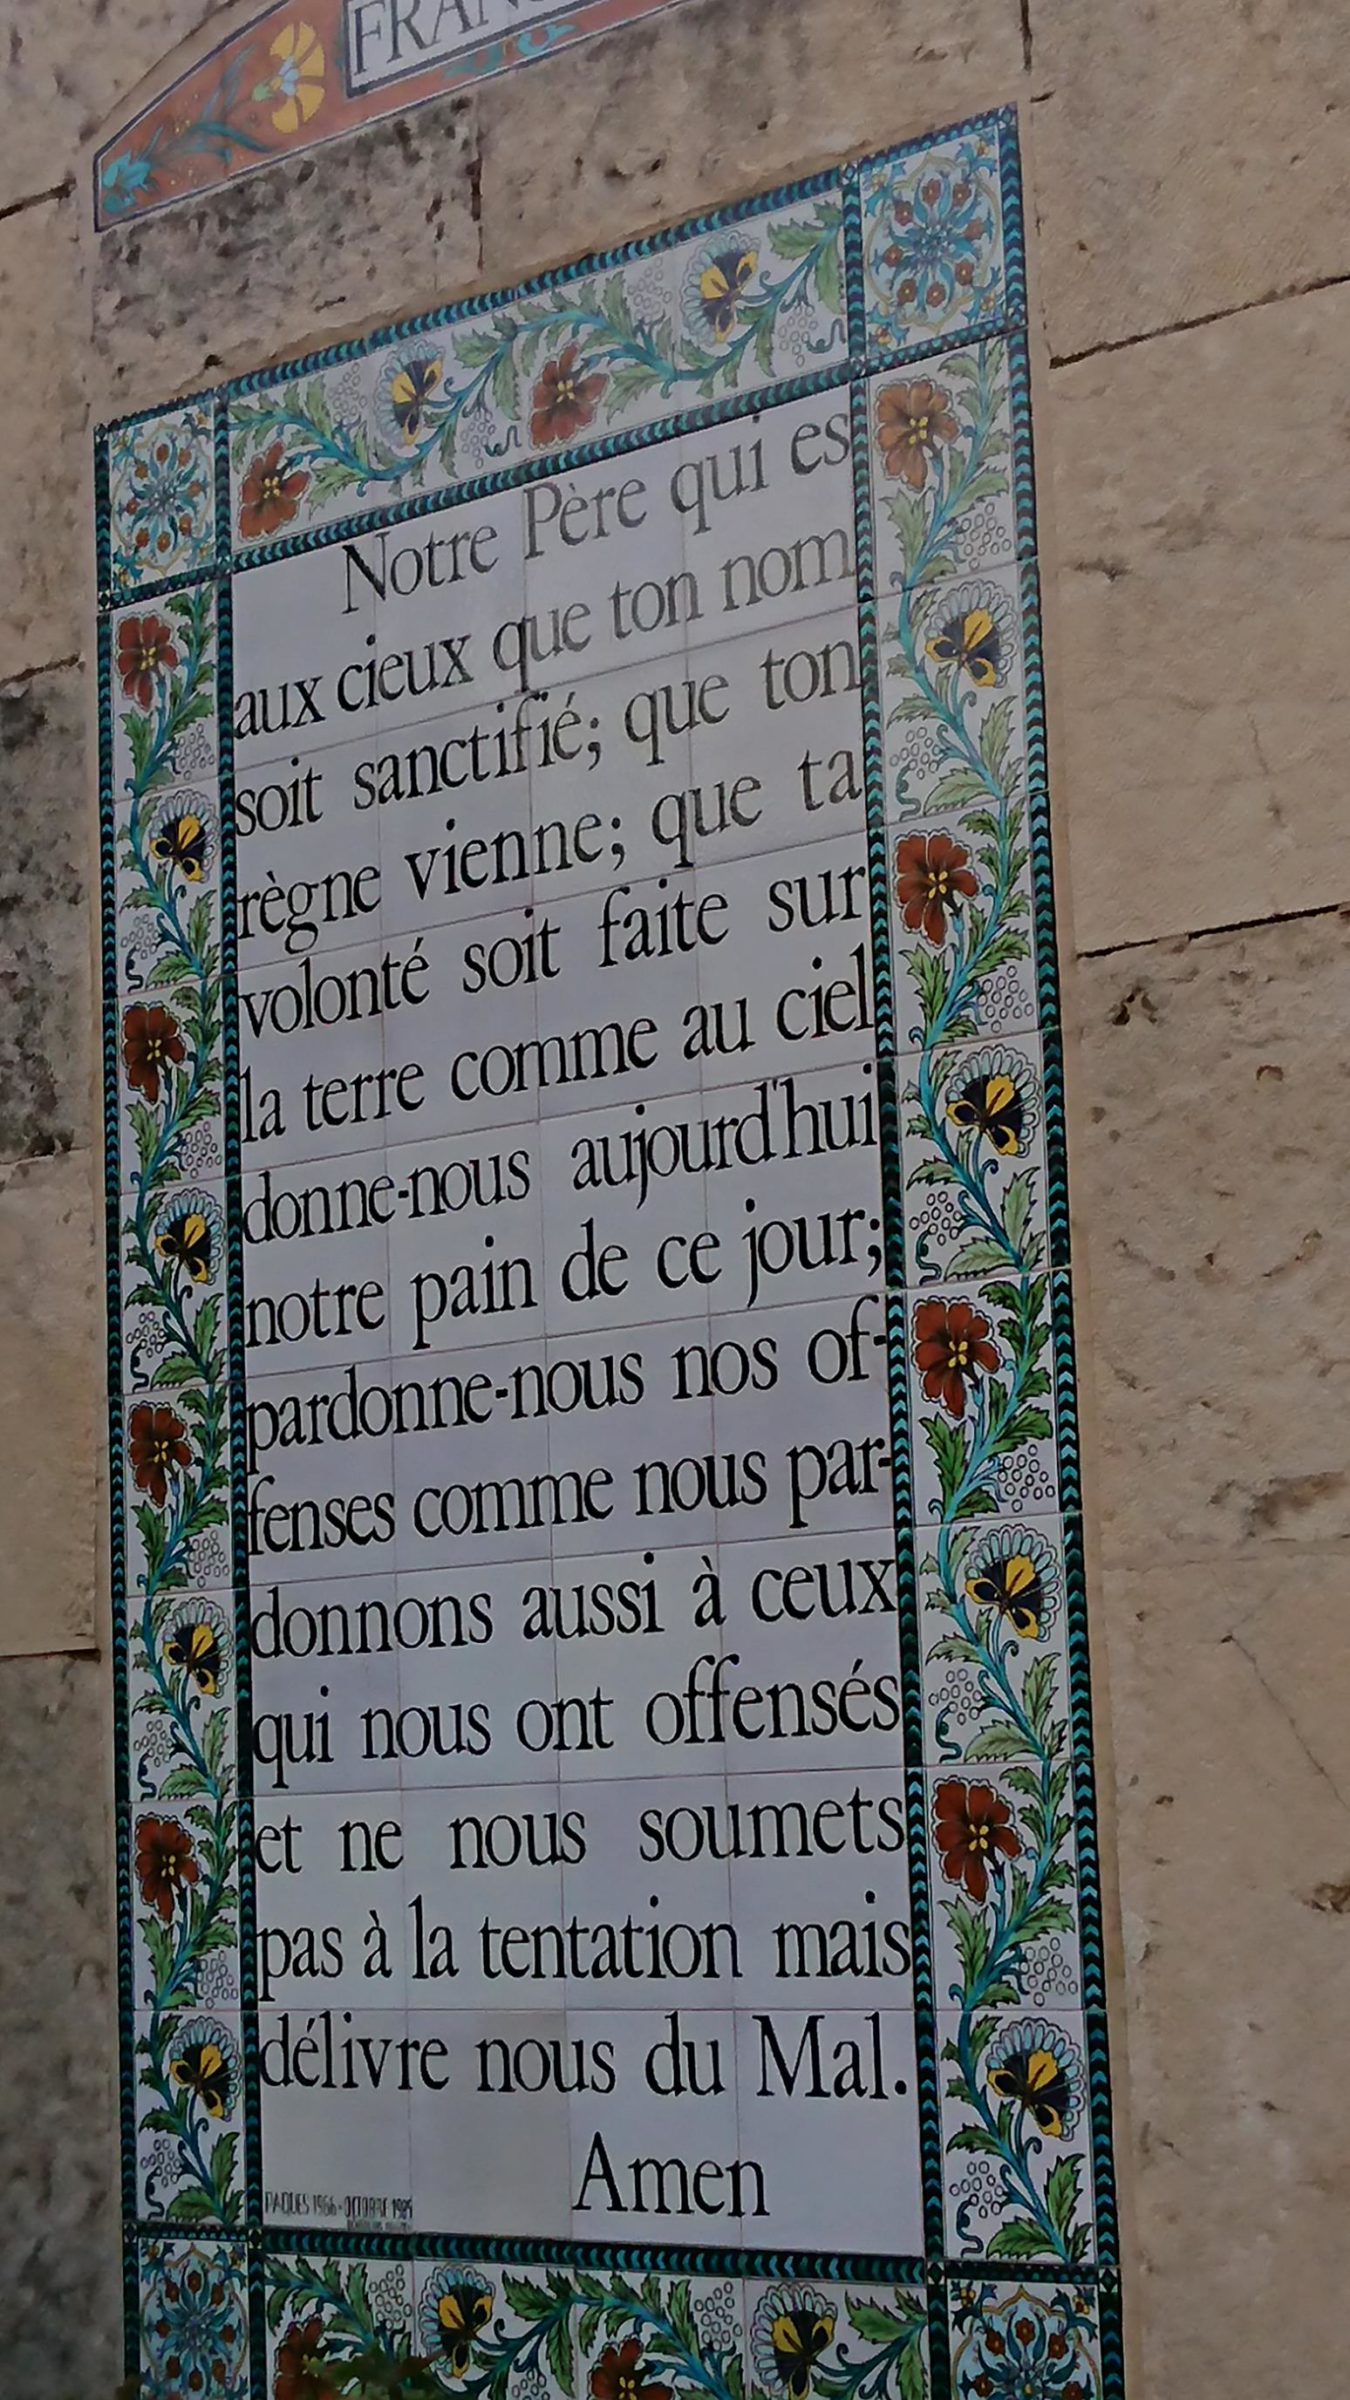 FRAN
Notre Père qui es
aux cieux que ton nom
soit sanctifié; que ton
règne vienne; que ta
volonté soit faite sur
la terre comme au ciel
donne-nous aujourd'hui
notre pain de ce jour;
pardonne-nous nos of-
fenses comme nous par-
donnons aussi à ceux
qui nous ont offensés
et ne nous soumets
pas à la tentation mais
délivre nous du Mal.
Amen
PAQUES 1966 - OCTOBRE 1989